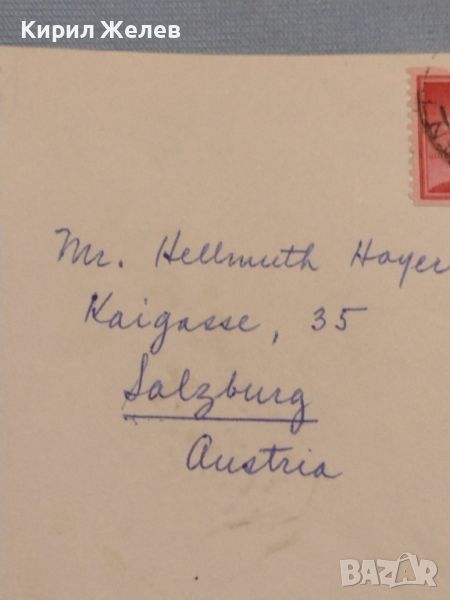 Кирил Желев
Mr. Hellmuth Hoyer
Kaigasse, 35
Salzburg
Austria
BAZAR